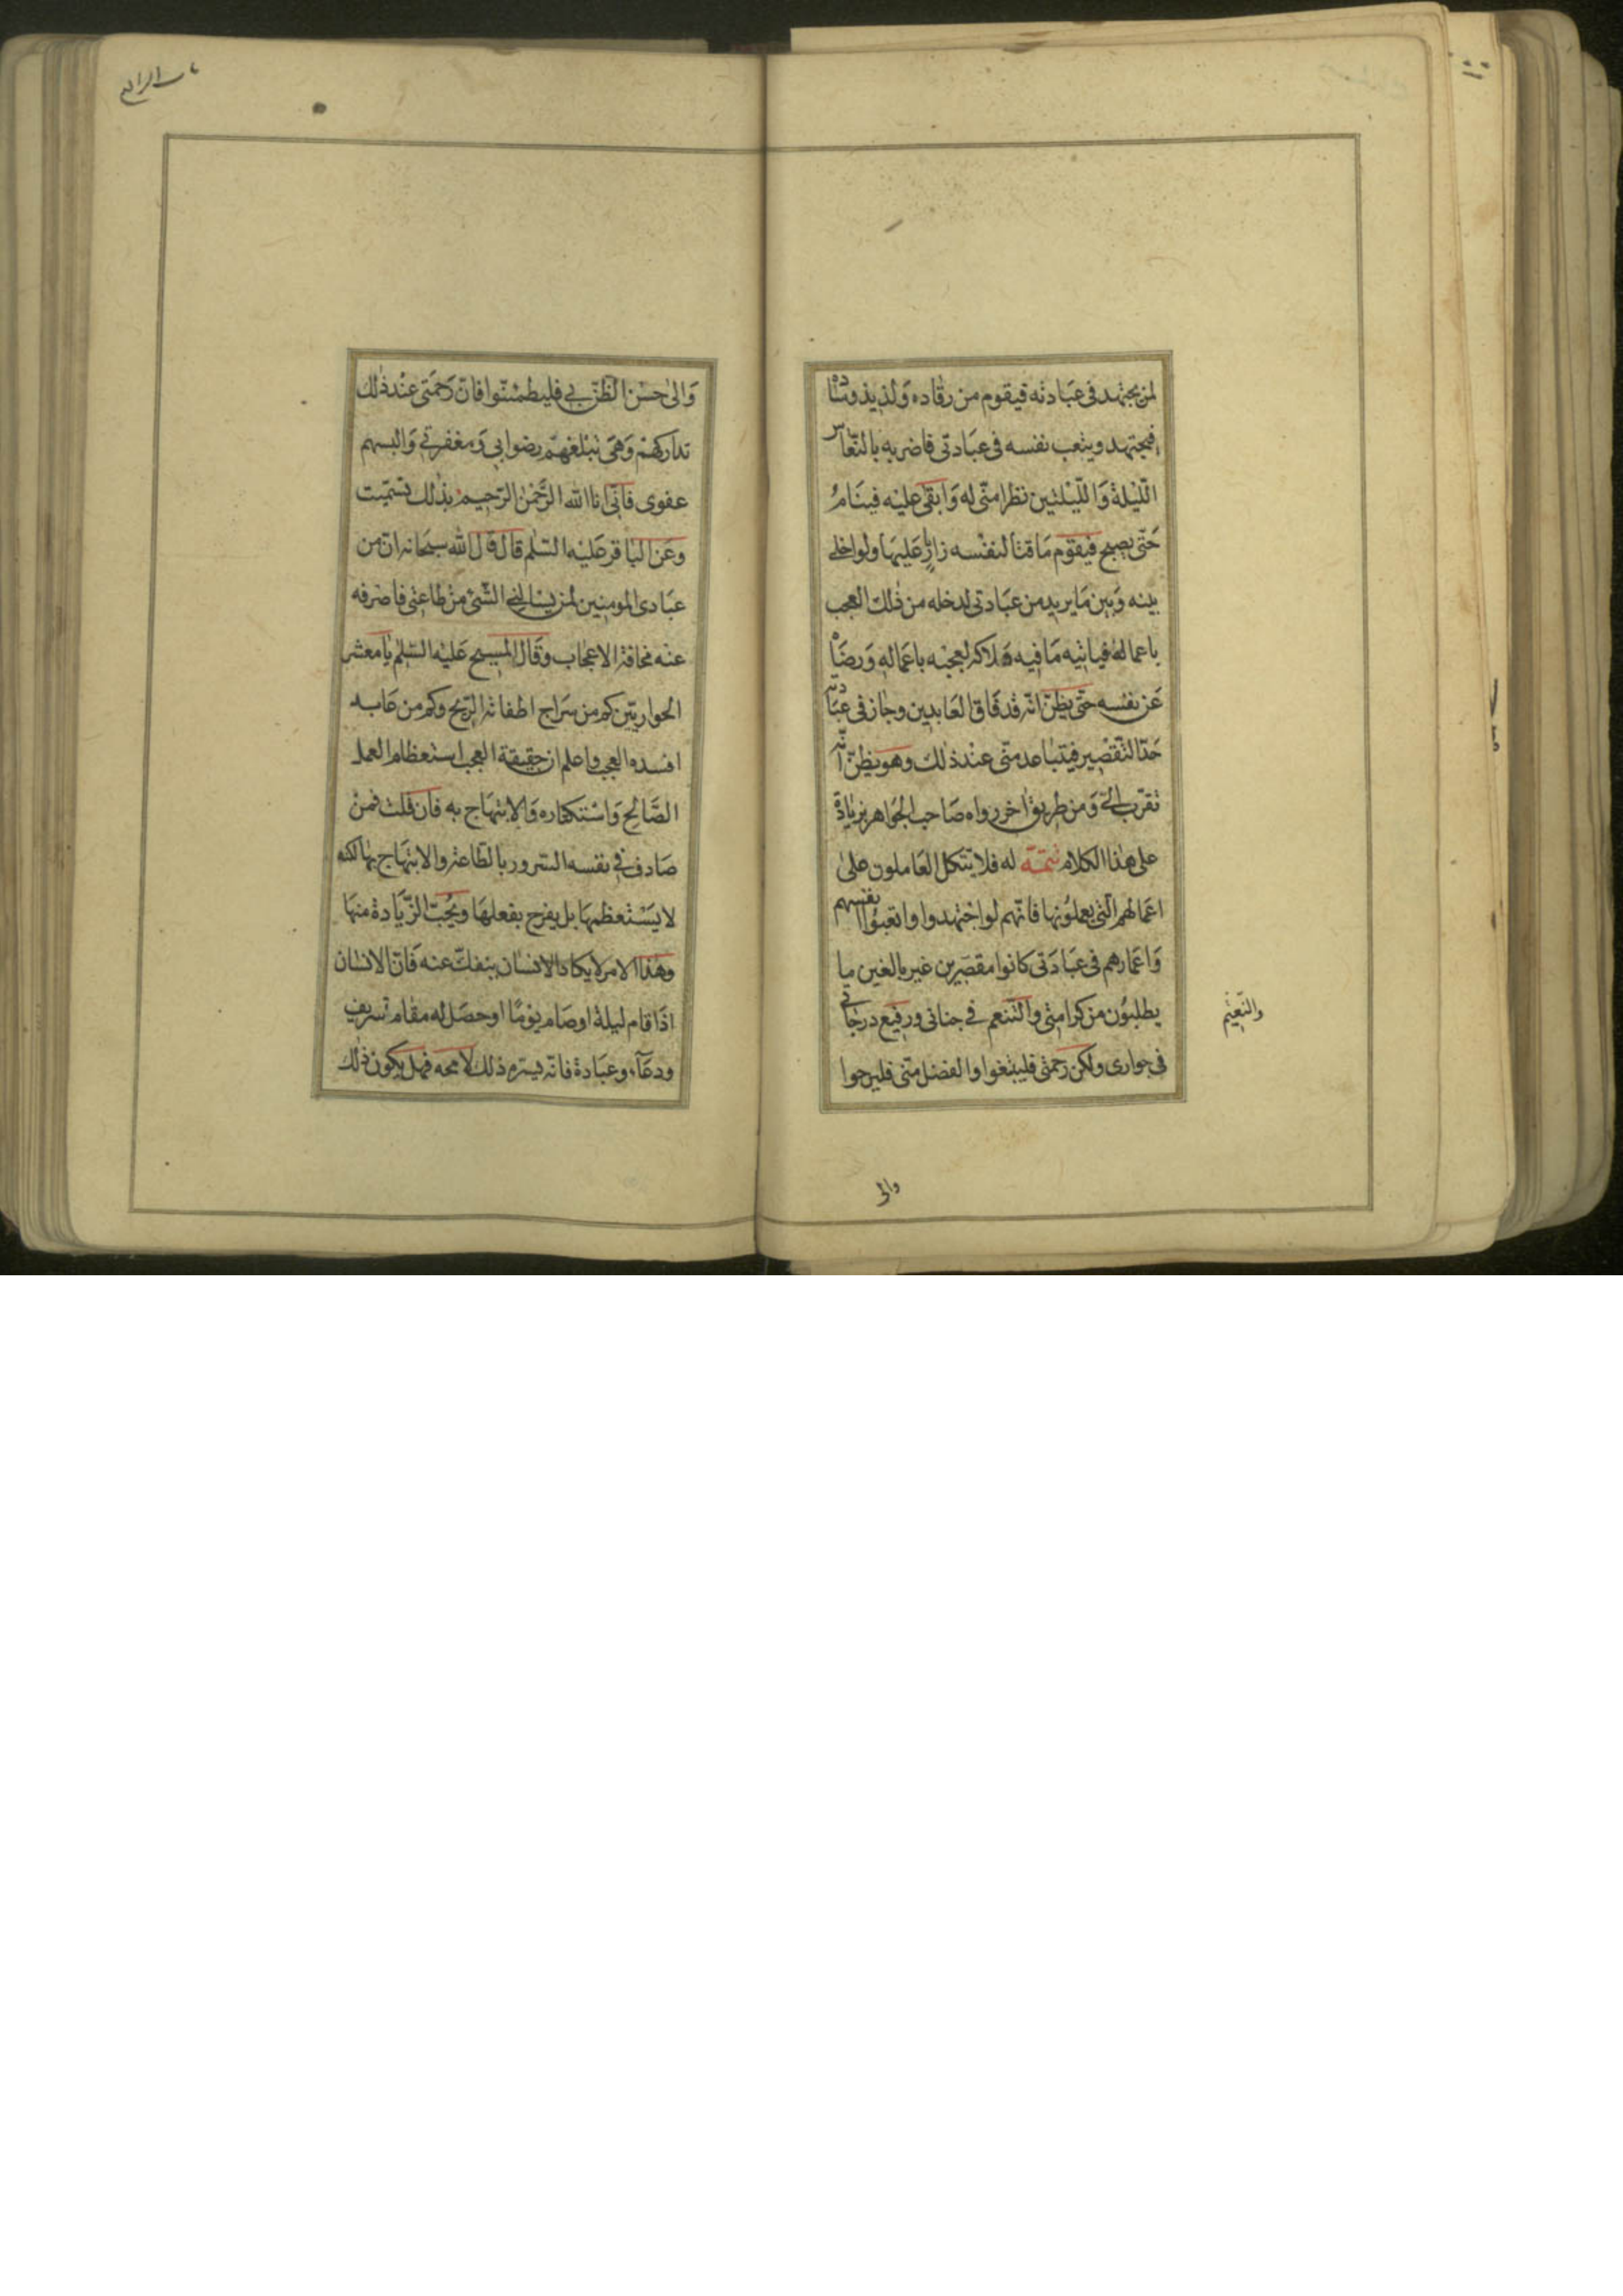 لمن يجتهد فى عبادته فيقوم من رقاده ولذيذ وساده
فيجتهد ويتعب نفسه فى عبادتى فاضربه بالنعاس
الليلة والليلتين نظرا منى له وابقى عليه فينام
حتى يصبح فيقوم ماقتا لنفسه زار عليها ولو اخلى
بينه وبين ما يريد من عبادتى لدخله من ذلك العجب
باعماله فياتيه ما فيه هلاكه لعجبه باعماله ورضاه
عن نفسه حتى يظن انه قد فاق العابدين وجاز فى عبادته
حد التقصير فيتباعد منى عند ذلك وهو يظن انه
تقرب الى ومن طريق اخر رواه صاحب الجواهر بزيادة
على هذا الكلام تتمة له فلا يتكل العاملون على
اعمالهم التى يعملونها فانهم لو اجتهدوا واتعبوا انفسهم
واعمارهم فى عبادتى كانوا مقصرين غير بالغين ما
يطلبون من كرامتى والتنعم فى جناتى ورفيع درجاتى
فى جوارى ولكن رحمتى فليبتغوا والفضل منى فليرجوا
والنعيم
والى
والى حسن الظن بى فليطمئنوا فان رحمتى عند ذلك
تداركهم وهى تبلغهم رضوانى ومغفرتى والبسهم
عفوى فانى انا الله الرحمن الرحيم بذلك تسميت
وعن الباقر عليه السلم قال قال الله سبحانه ان من
عبادى المومنين لمن يسالنى الشئ من طاعتى فاصرفه
عنه مخافة الاعجاب وقال المسيح عليه السلم يا معشر
الحواريين كم من سراج اطفاته الريح وكم من عابد
افسده العجب واعلم ان حقيقة العجب استعظام العمل
الصالح واستكثاره والابتهاج به فان قلت فمن
صادف فى نفسه السرور بالطاعة والابتهاج بها لكنه
لا يستعظمها بل يفرح بفعلها ويحب الزيادة منها
وهذا الامر لا يكاد الانسان ينفك عنه فان الانسان
اذا قام ليلة او صام يوما او حصل له مقام شريف
ودعاء وعبادة فانه يسره ذلك لا محه فهل يكون ذلك